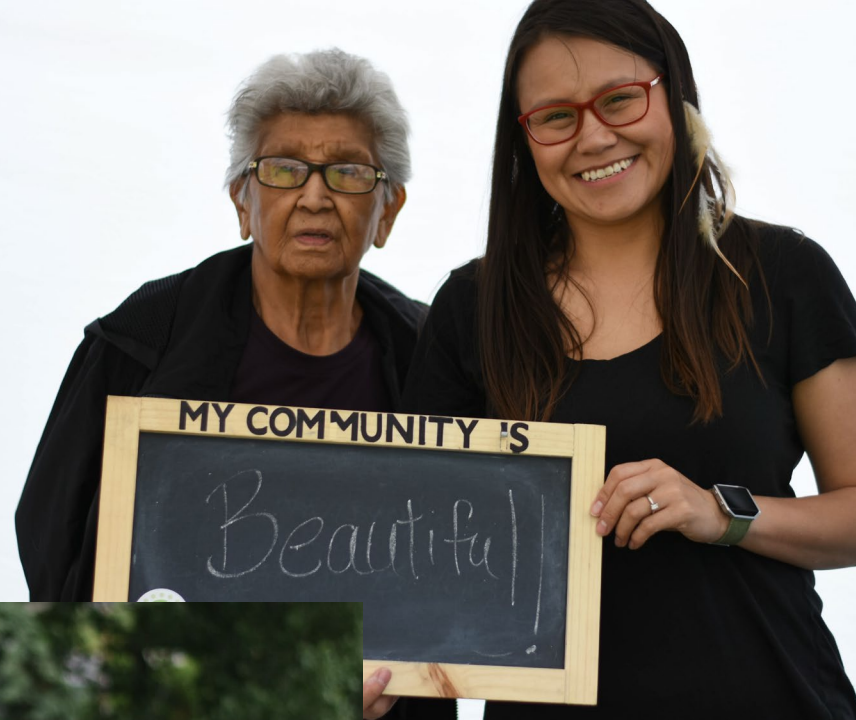 MY COMMUNITY IS
Beautiful!